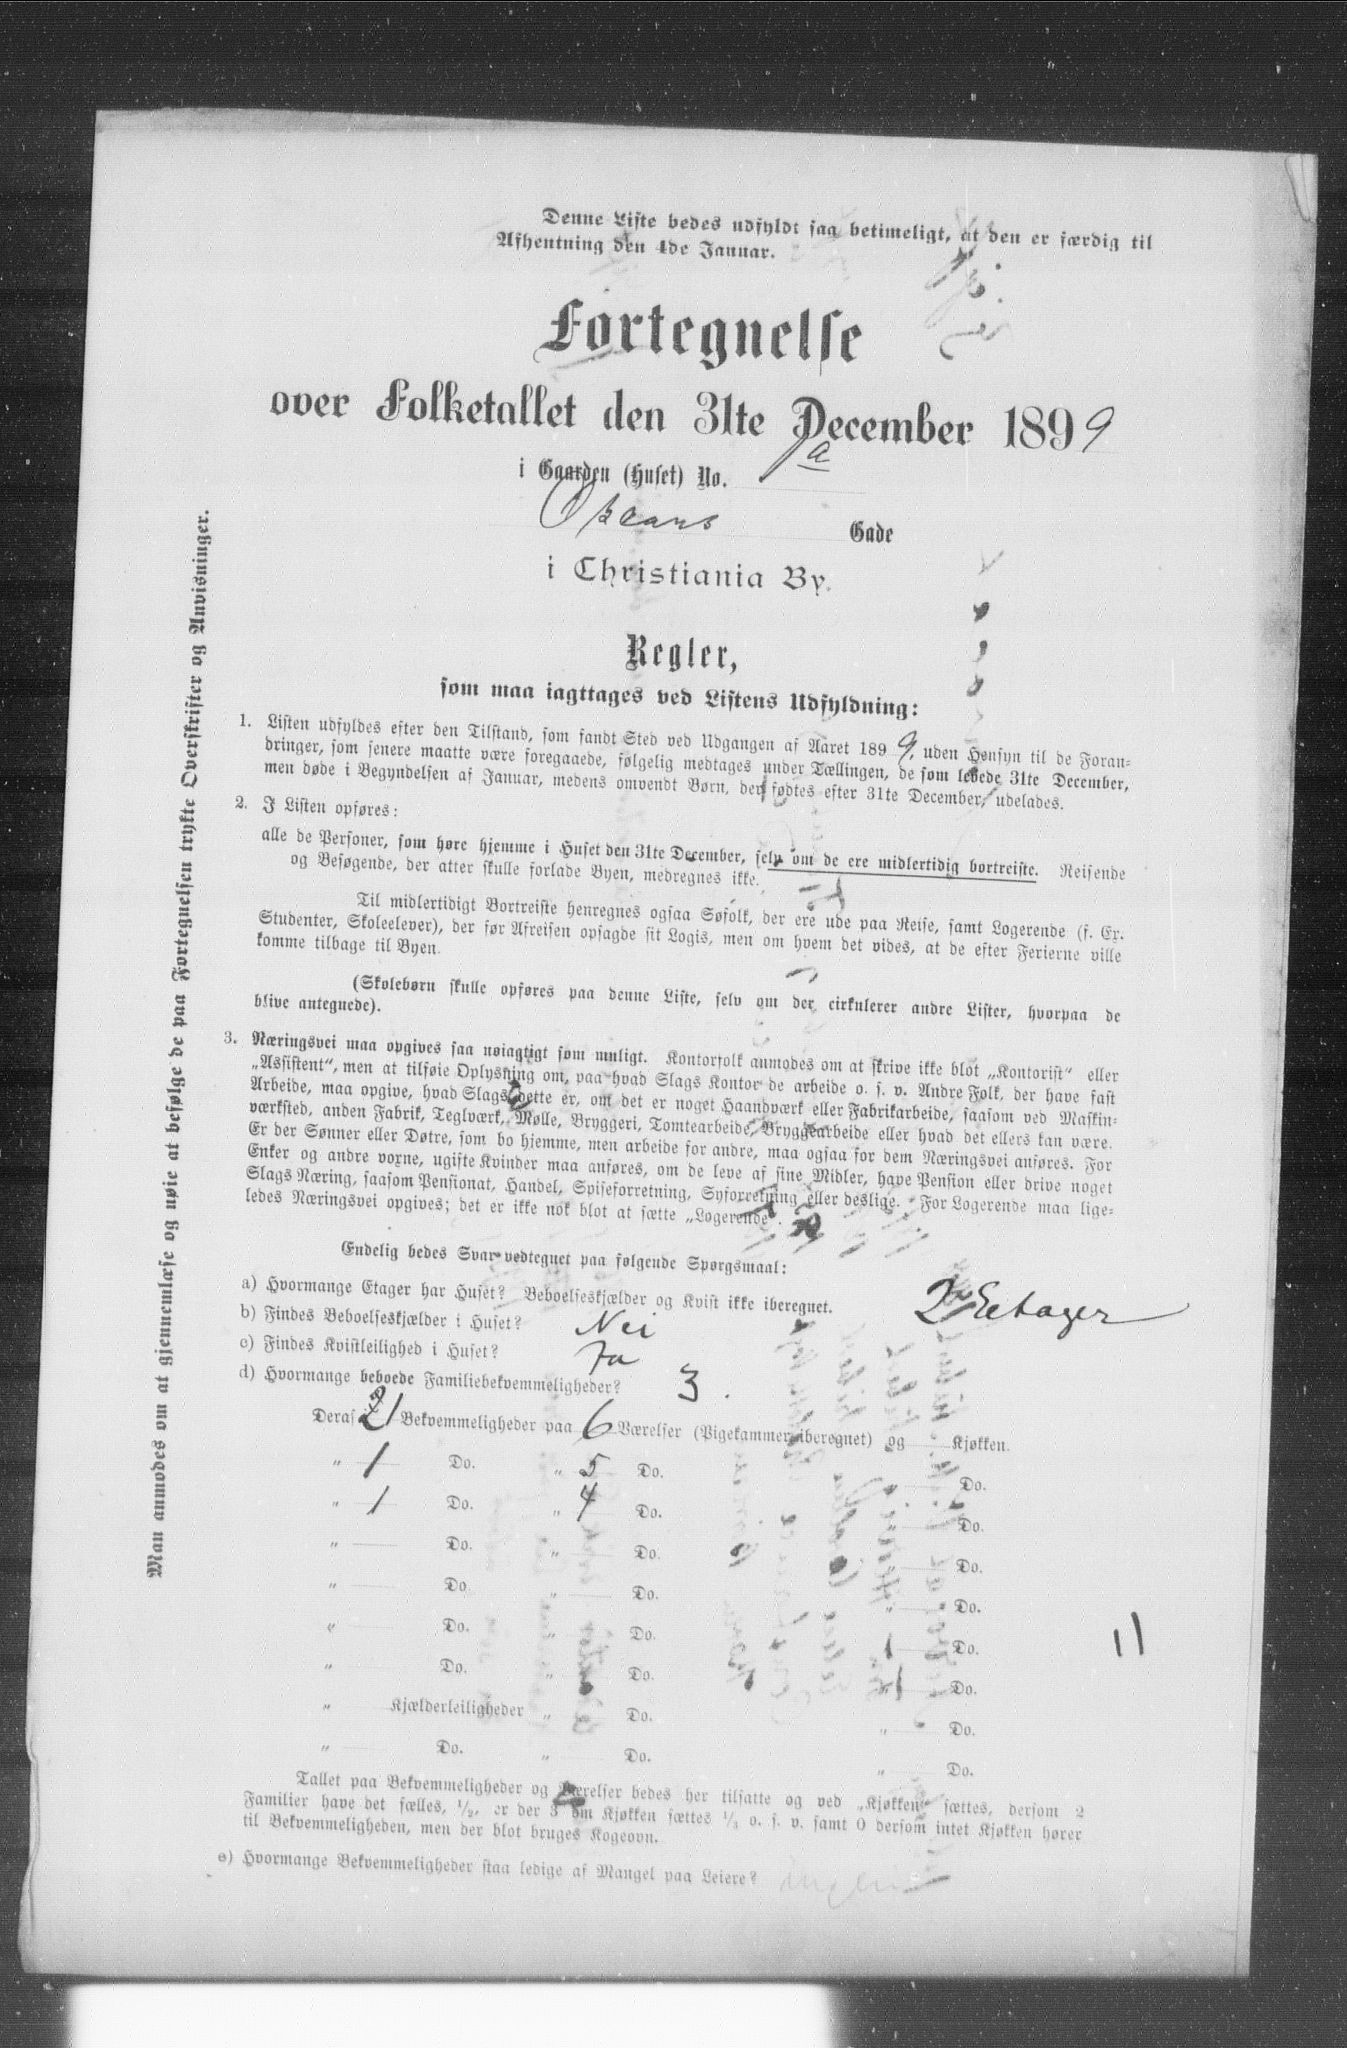 Denne Liste bedes udfyldt saa betimeligt, at den er færdig til
Afhentning den 4de Januar.
Fortegnelse
over Folketallet den 31te December 1899
i Gaarden (Huset) No. 1a
Oskars Gade
i Christiania By.
Regler,
som maa iagttages ved Listens Udfyldning:
1. Listen udfyldes efter den Tilstand, som fandt Sted ved Udgangen af Aaret 1899, uden Hensyn til de Foran-
dringer, som senere maatte være foregaaede, følgelig medtages under Tællingen, de som levede 31te December,
men døde i Begyndelsen af Januar, medens omvendt Børn, der fødtes efter 31te December, udelades.
2. I Listen opføres:
alle de Personer, som høre hjemme i Huset den 31te December, selv om de ere midlertidig bortreiste. Reisende
og Besøgende, der atter skulle forlade Byen, medregnes ikke.
Til midlertidigt Bortreiste henregnes ogsaa Søfolk, der ere ude paa Reise, samt Logerende (f. Ex.
Studenter, Skoleelever), der før Afreisen opsagde sit Logis, men om hvem det vides, at de efter Ferierne ville
komme tilbage til Byen.
(Skolebørn skulle opføres paa denne Liste, selv om der cirkulerer andre Lister, hvorpaa de
blive antegnede).
3. Næringsvei maa opgives saa nøiagtigt som muligt. Kontorfolk anmodes om at skrive ikke blot „Kontorist“ eller
„Assistent“, men at tilføie Oplysning om, paa hvad Slags Kontor de arbeide o. s. v. Andre Folk, der have fast
Arbeide, maa opgive, hvad Slags dette er, om det er noget Haandværk eller Fabrikarbeide, saasom ved Maskin-
værksted, anden Fabrik, Teglværk, Mølle, Bryggeri, Tomtearbeide, Bryggearbeide eller hvad det ellers kan være.
Er der Sønner eller Døtre, som bo hjemme, men arbeide for andre, maa ogsaa for dem Næringsvei anføres. For
Enker og andre voxne, ugifte Kvinder maa anføres, om de leve af sine Midler, have Pension eller drive noget
Slags Næring, saasom Pensionat, Handel, Spiseforretning, Syforretning eller deslige. For Logerende maa lige-
ledes Næringsvei opgives; det er ikke nok blot at sætte „Logerende“.
Endelig bedes Svar vedtegnet paa følgende Spørgsmaal:
a) Hvormange Etager har Huset? Beboelseskjælder og Kvist ikke iberegnet. 2 Eetager
b) Findes Beboelseskjælder i Huset? Nei
c) Findes Kvistleilighed i Huset? Ja
d) Hvormange beboede Familiebekvemmeligheder? 3.
Deraf 1 Bekvemmeligheder paa 6 Værelser (Pigekammer iberegnet) og Kjøkken.
„ 1 Do. „ 5 Do. Do.
„ 1 Do. „ 4 Do. Do.
„ Do. „ Do. Do.
„ Do. „ Do. „ Do.
„ Do. „ Do. Do.
„ Do. „ Do. „ Do.
„ Kjælderleiligheder „ Do. „ Do.
„ Do. „ Do. „ Do.
11
Tallet paa Bekvemmeligheder og Værelser bedes her tilsatte og ved „Kjøkken“ sættes, dersom 2
Familier have det fælles, 1/2, er der 3 om Kjøkken sættes 1/3 o. s. v. samt 0 dersom intet Kjøkken hører
til Bekvemmeligheden, men der blot bruges Kogeovn.
e) Hvormange Bekvemmeligheder staa ledige af Mangel paa Leiere? Ingen
Man anmodes om at gjennemlæse og nøie at befølge de paa Fortegnelsen trykte Overskrifter og Anvisninger.